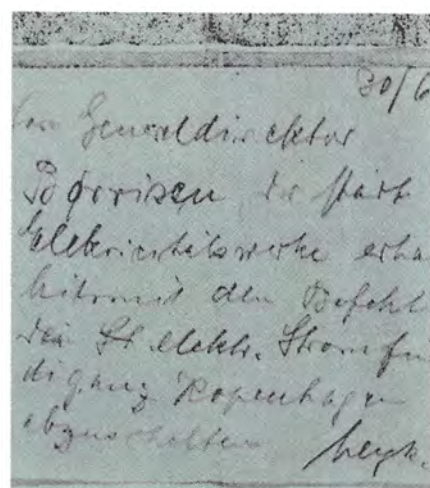 30/6
Generaldirektor
Børrisen der städt
Elektricitätswerke erha
hiermit den Befehl
den elektr. Strom für
ganz Kopenhagen
abzuschalten